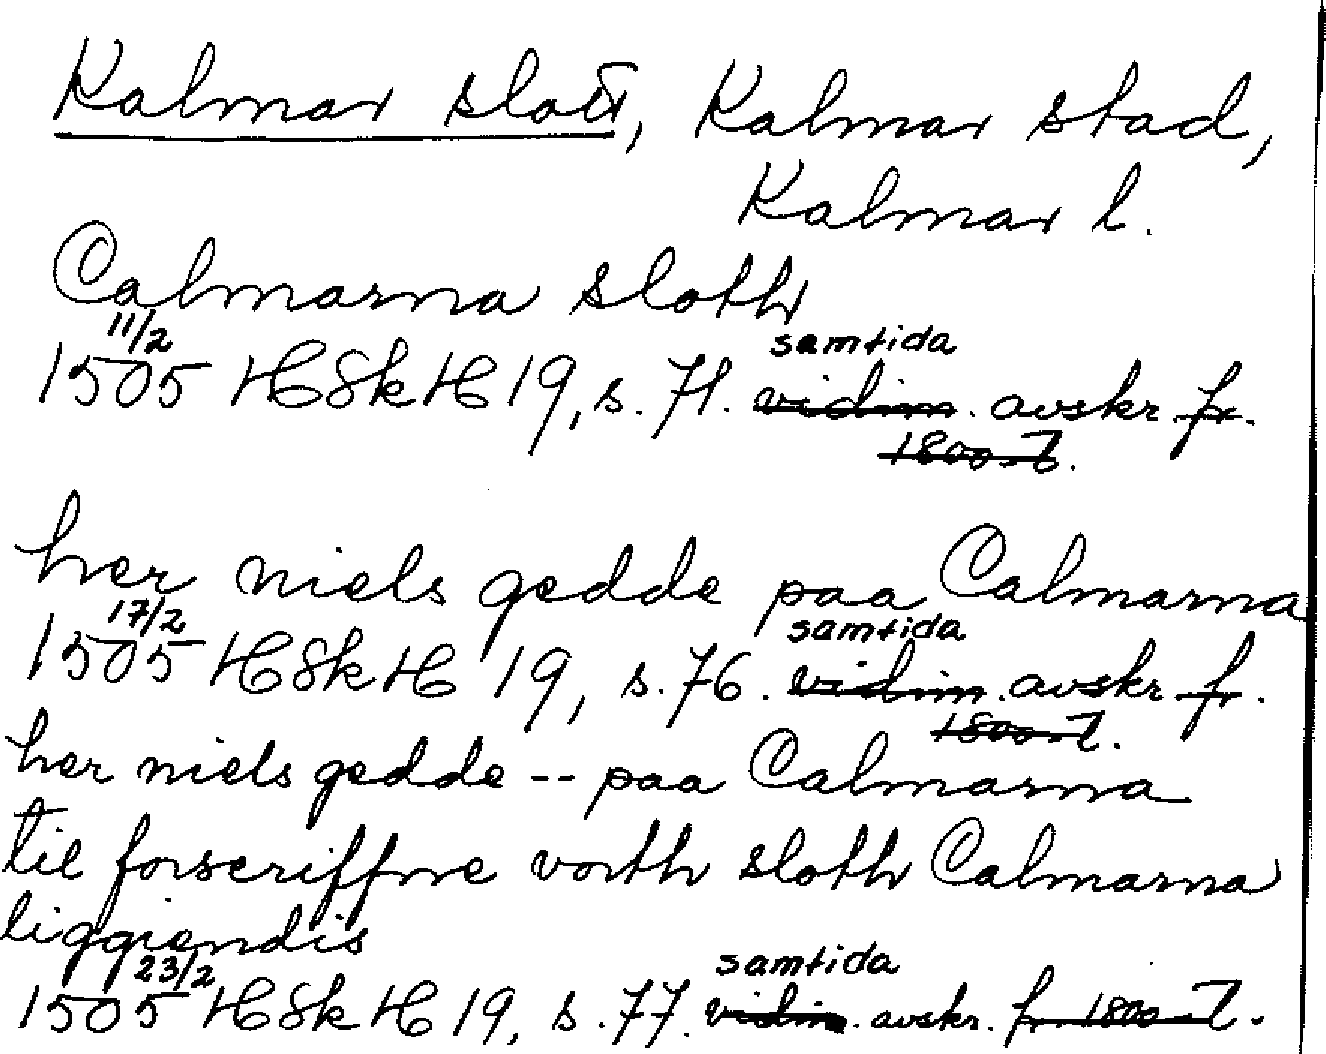 Kalmar slott, Kalmar stad,
Kalmar l.
Calmarna sloth
11/2 samtida
1505 HSkH 19, s. 71. vidim. avskr fr.
1800-t.
her niels gedde paa Calmarna
17/2 samtida
1505 HSkH 19, s. 76. vidim. avskr fr.
1800-t.
her niels gedde -- paa Calmarna
til forscriffne vorth sloth Calmarna
liggiendis
23/2 samtida
1505 HSkH 19, s. 77. vidim. avskr. fr. 1800-t.